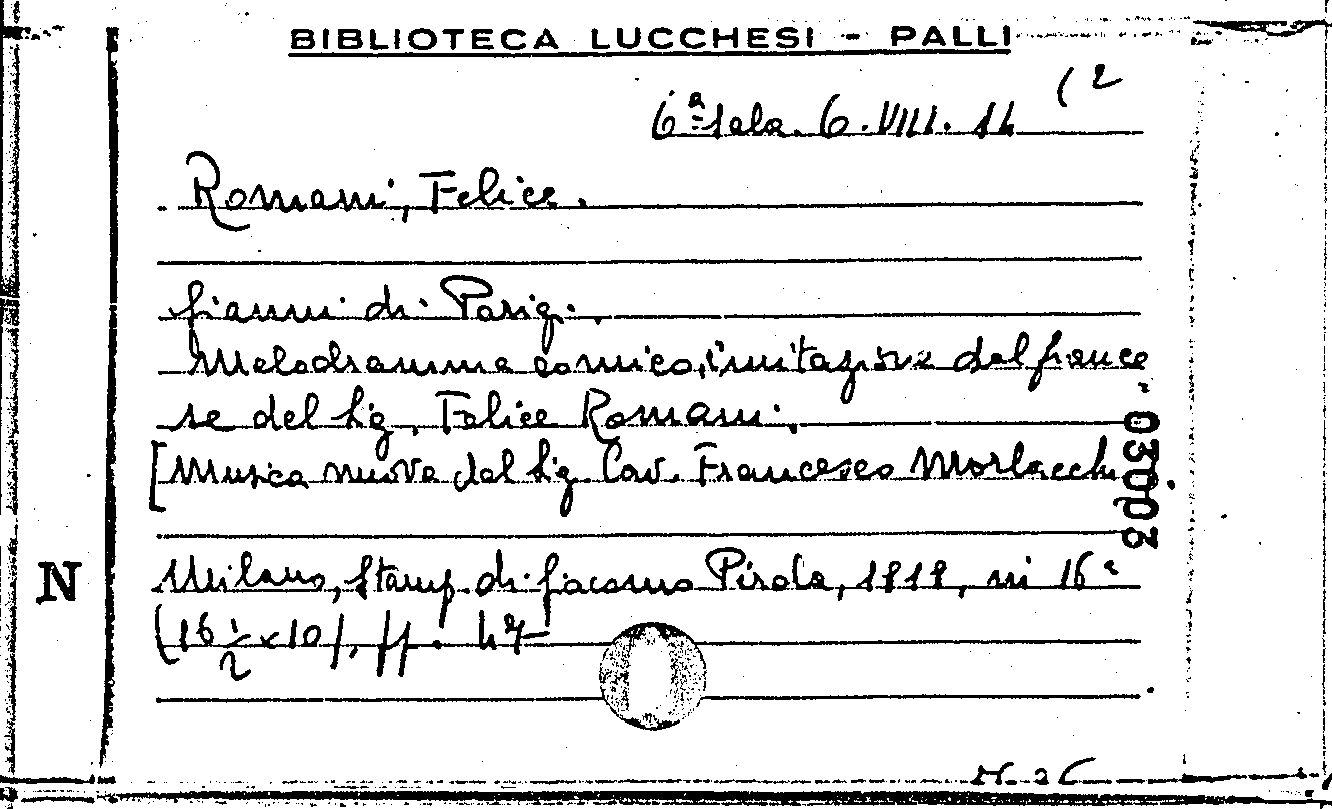 BIBLIOTECA LUCCHESI - PALLI
(2
6ª Sala. 6. VIII. 14
Romani, Felice.
Gianni di Parigi.
Melodramma comico, imitazione dal france
se del Sig. Felice Romani.
[Musica nuova del Sig. Cav. Francesco Morlacchi.
03003
N
Milano, Stamp. di Giacomo Pirola, 1818, in 16°
(16 1/2 x 10), pp. 47